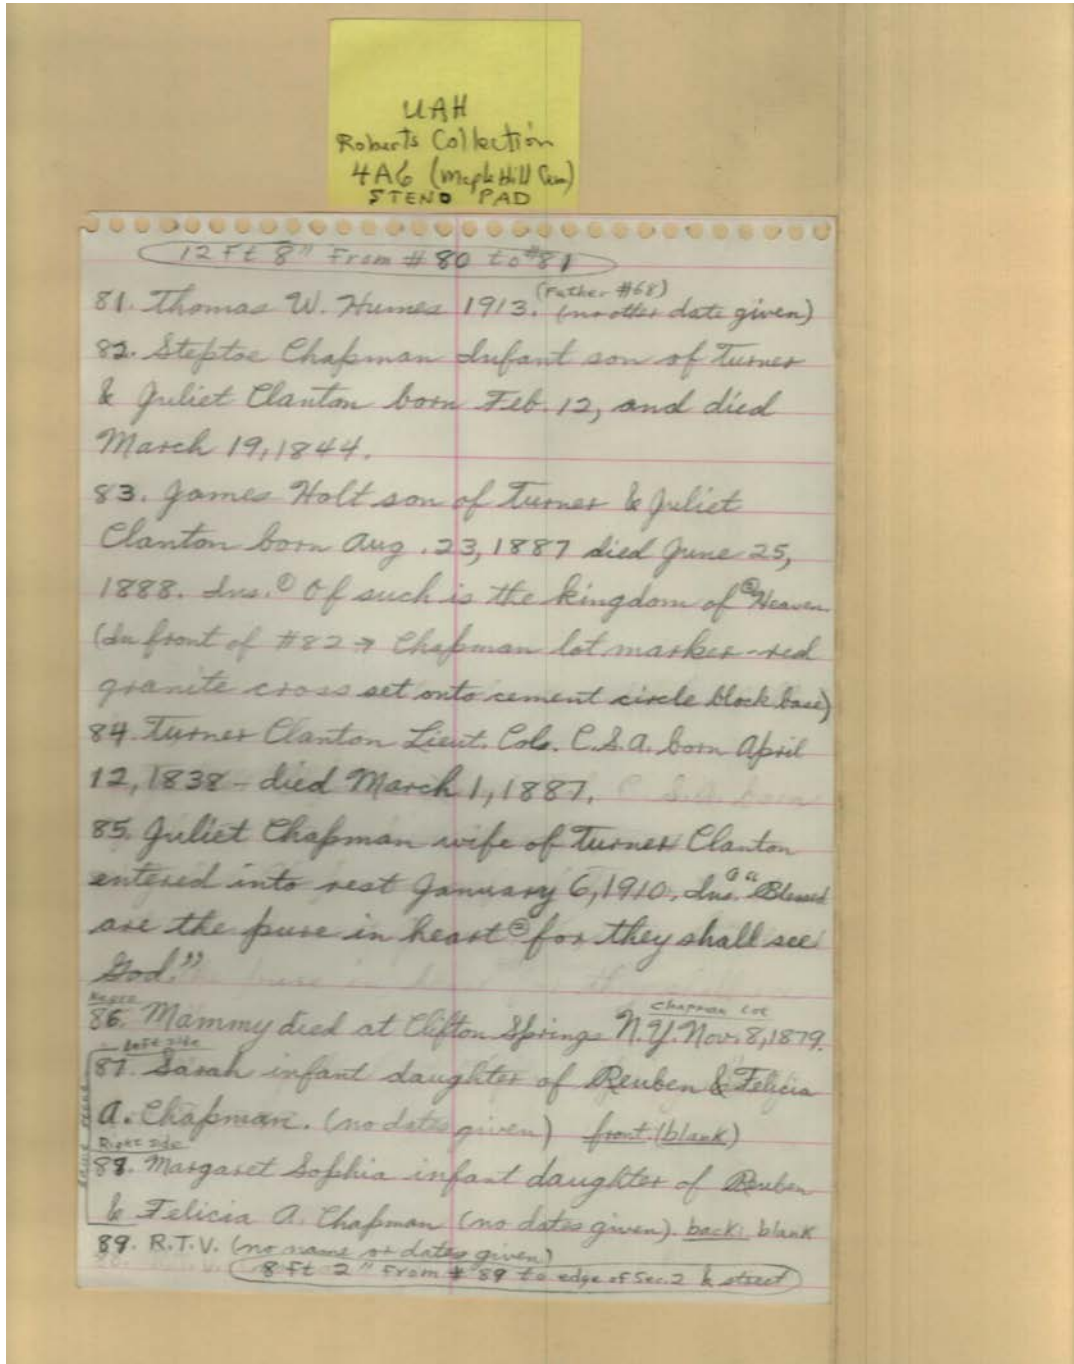 UAH
Roberts Collection
4A6 (Maple Hill Cem)
STENO PAD
12 Ft 8" From #80 to #81
(Father #68)
81. Thomas W. Humes 1913. (no other date given)
82. Steptoe Chapman Infant son of Turner
& Juliet Clanton born Feb. 12, and died
March 19, 1844.
83. James Holt son of Turner & Juliet
Clanton born Aug. 23, 1887 died June 25,
1888. Ins. Of such is the kingdom of Heaven
(In front of #82 → Chapman lot marker - red
granite cross set onto cement circle block base)
84. Turner Clanton Lieut. Colo. C.S.A. born April
12, 1838 - died March 1, 1887.
85. Juliet Chapman wife of Turner Clanton
entered into rest January 6, 1910. Ins. "Blessed
are the pure in heart for they shall see
God."
Negro
Chapman Lot
86. Mammy died at Clifton Springs N.Y. Nov. 8, 1879.
Left side
87. Sarah infant daughter of Reuben & Felicia
A. Chapman. (no dates given) front (blank)
Right side
88. Margaret Sophia infant daughter of Reuben
& Felicia A. Chapman (no dates given). back: blank
89. R.T.V. (no name or dates given)
8 Ft 2" From #89 to edge of Sec. 2 & street